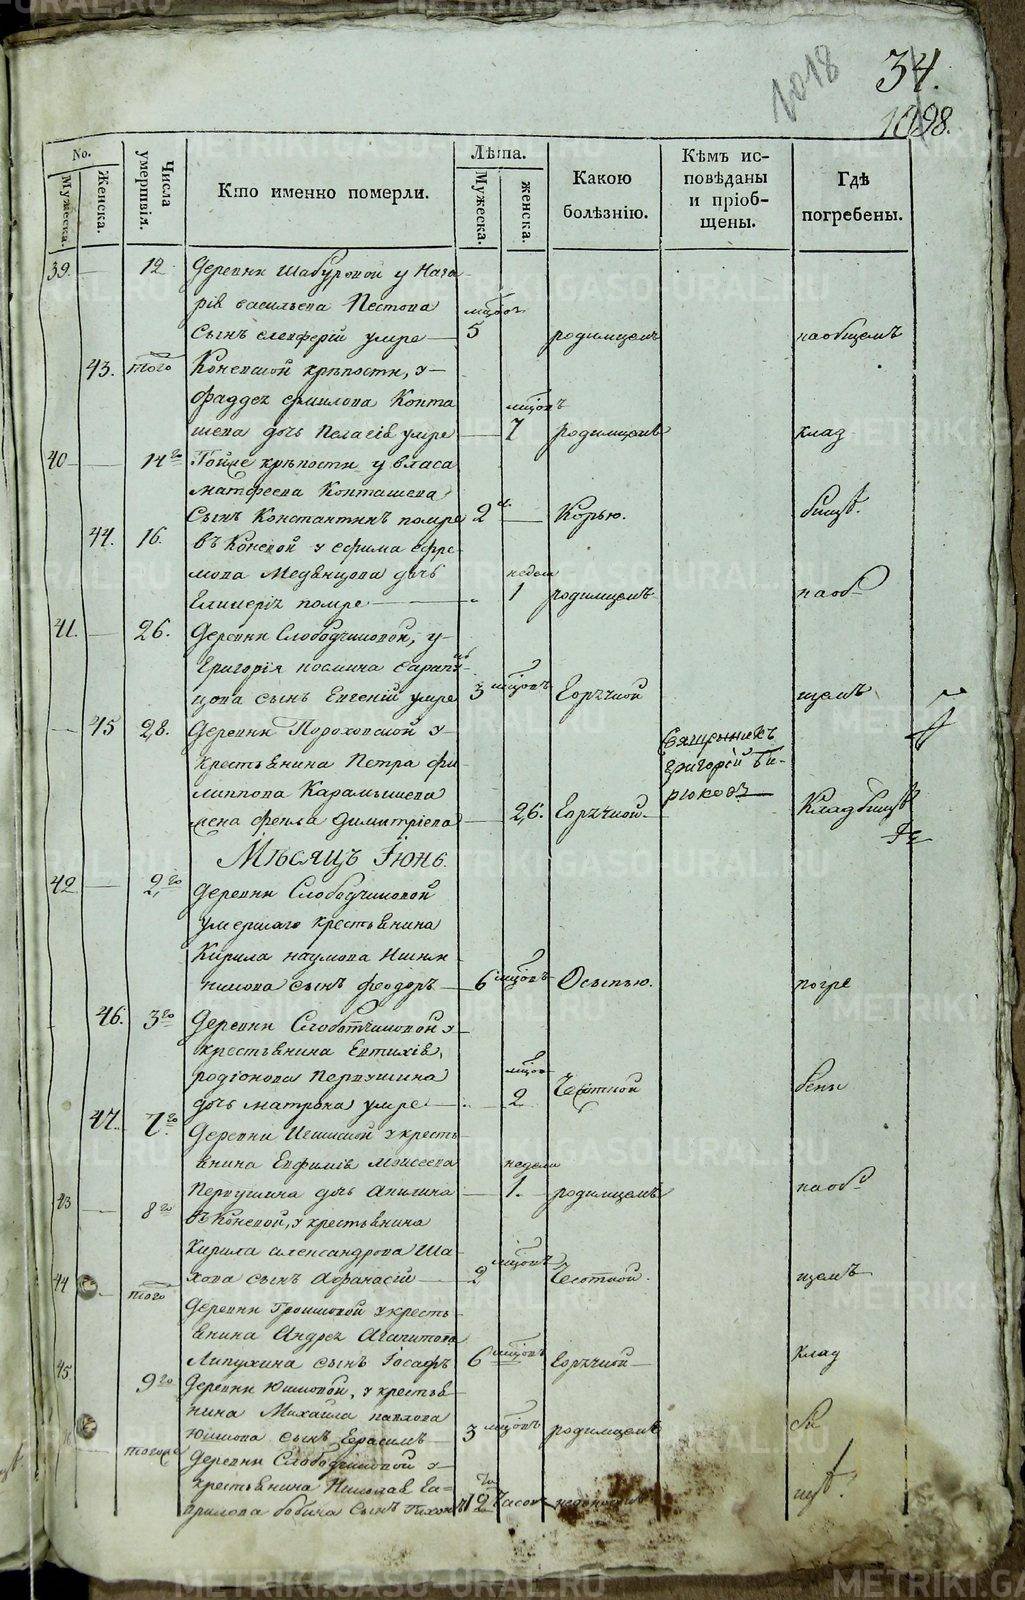 1018
34.
1098.
No.
Мужеска.
Женска.
Числа умертвія.
Кто именно померли.
Лѣта.
Мужеска.
женска.
Какою болѣзнію.
Кѣмъ ис-
повѣданы
и пріоб-
щены.
Гдѣ
погребены.
39. 12 Деревни Шабуровой у Наза
рія васильева Пестова мѣсяцовъ
сынъ елевферій умре 5 родимцемъ наобщемъ
43. того Коневской крѣпости, у
фаддея Конта мѣсяцовъ
шева дочь Пелагія умре 7 родимцемъ клад
40 14го Тойже крѣпости у власа
матфеева Конташева
сынъ Константинъ помре 2 Корью. бищѣ.
44. 16. въ Коневой у ефима ефре
мова Медвнцова дочь недели
помре 1 родимцемъ наоб
41. 26. Деревни Слободчиковой, у
Григорія
цова сынъ Евгеній умре 3 мѣсяцовъ Горячной щемъ
45 28. Деревни Пороховской у
крестьянина Петра фи
липпова Карамышева
жена фекла Димитріева 26. Горячной Кладбищѣ
Священникъ
Григорей Би-
рюковъ
Мѣсяцъ Іюнь.
42 2го Деревни Слободчиковой
умершаго крестьянина
Кирила наумова
сынъ феодоръ 6 мѣсяцовъ Осыпью. погре
46. 3го Деревни Слободчиковой у
крестьянина Евтихія
родіонова Первушина мѣсяцовъ
дочь матрона умре 2 Чахотной бены
47. 7го Деревни у кресть
янина Евфимія Моисеева недели
Первушина дочь Акилина 1. родимцемъ наоб
43 8го въ Коневой, у крестьянина
Кирила александрова Ша мѣсяцовъ
хова сынъ Афанасій 2 Чахотной. щемъ
44 того Деревни у кресть
янина Андрея Агапитова
Липухина сынъ Іосафъ 6 мѣсяцовъ Горячной клад
45 9го Деревни Юшковой, у крестья
нина Михаила павлова
Юшкова сынъ Герасимъ 3 мѣсяцовъ родимцемъ би
тогоже Деревни Слободчиковой у
крестьянина Николая Га
врилова бобина сынъ Тихонъ 12 часов щѣ.
METRIKI.GASO-URAL.RU